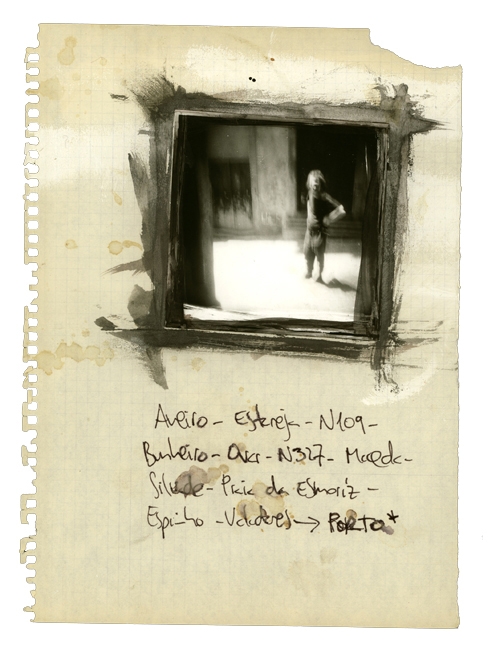 Aveiro - Estarreja - N109 -
Bunheiro - Ovar - N327 - Maceda -
Silvade - Praia de Esmoriz -
Espinho - Valadares → PORTO*